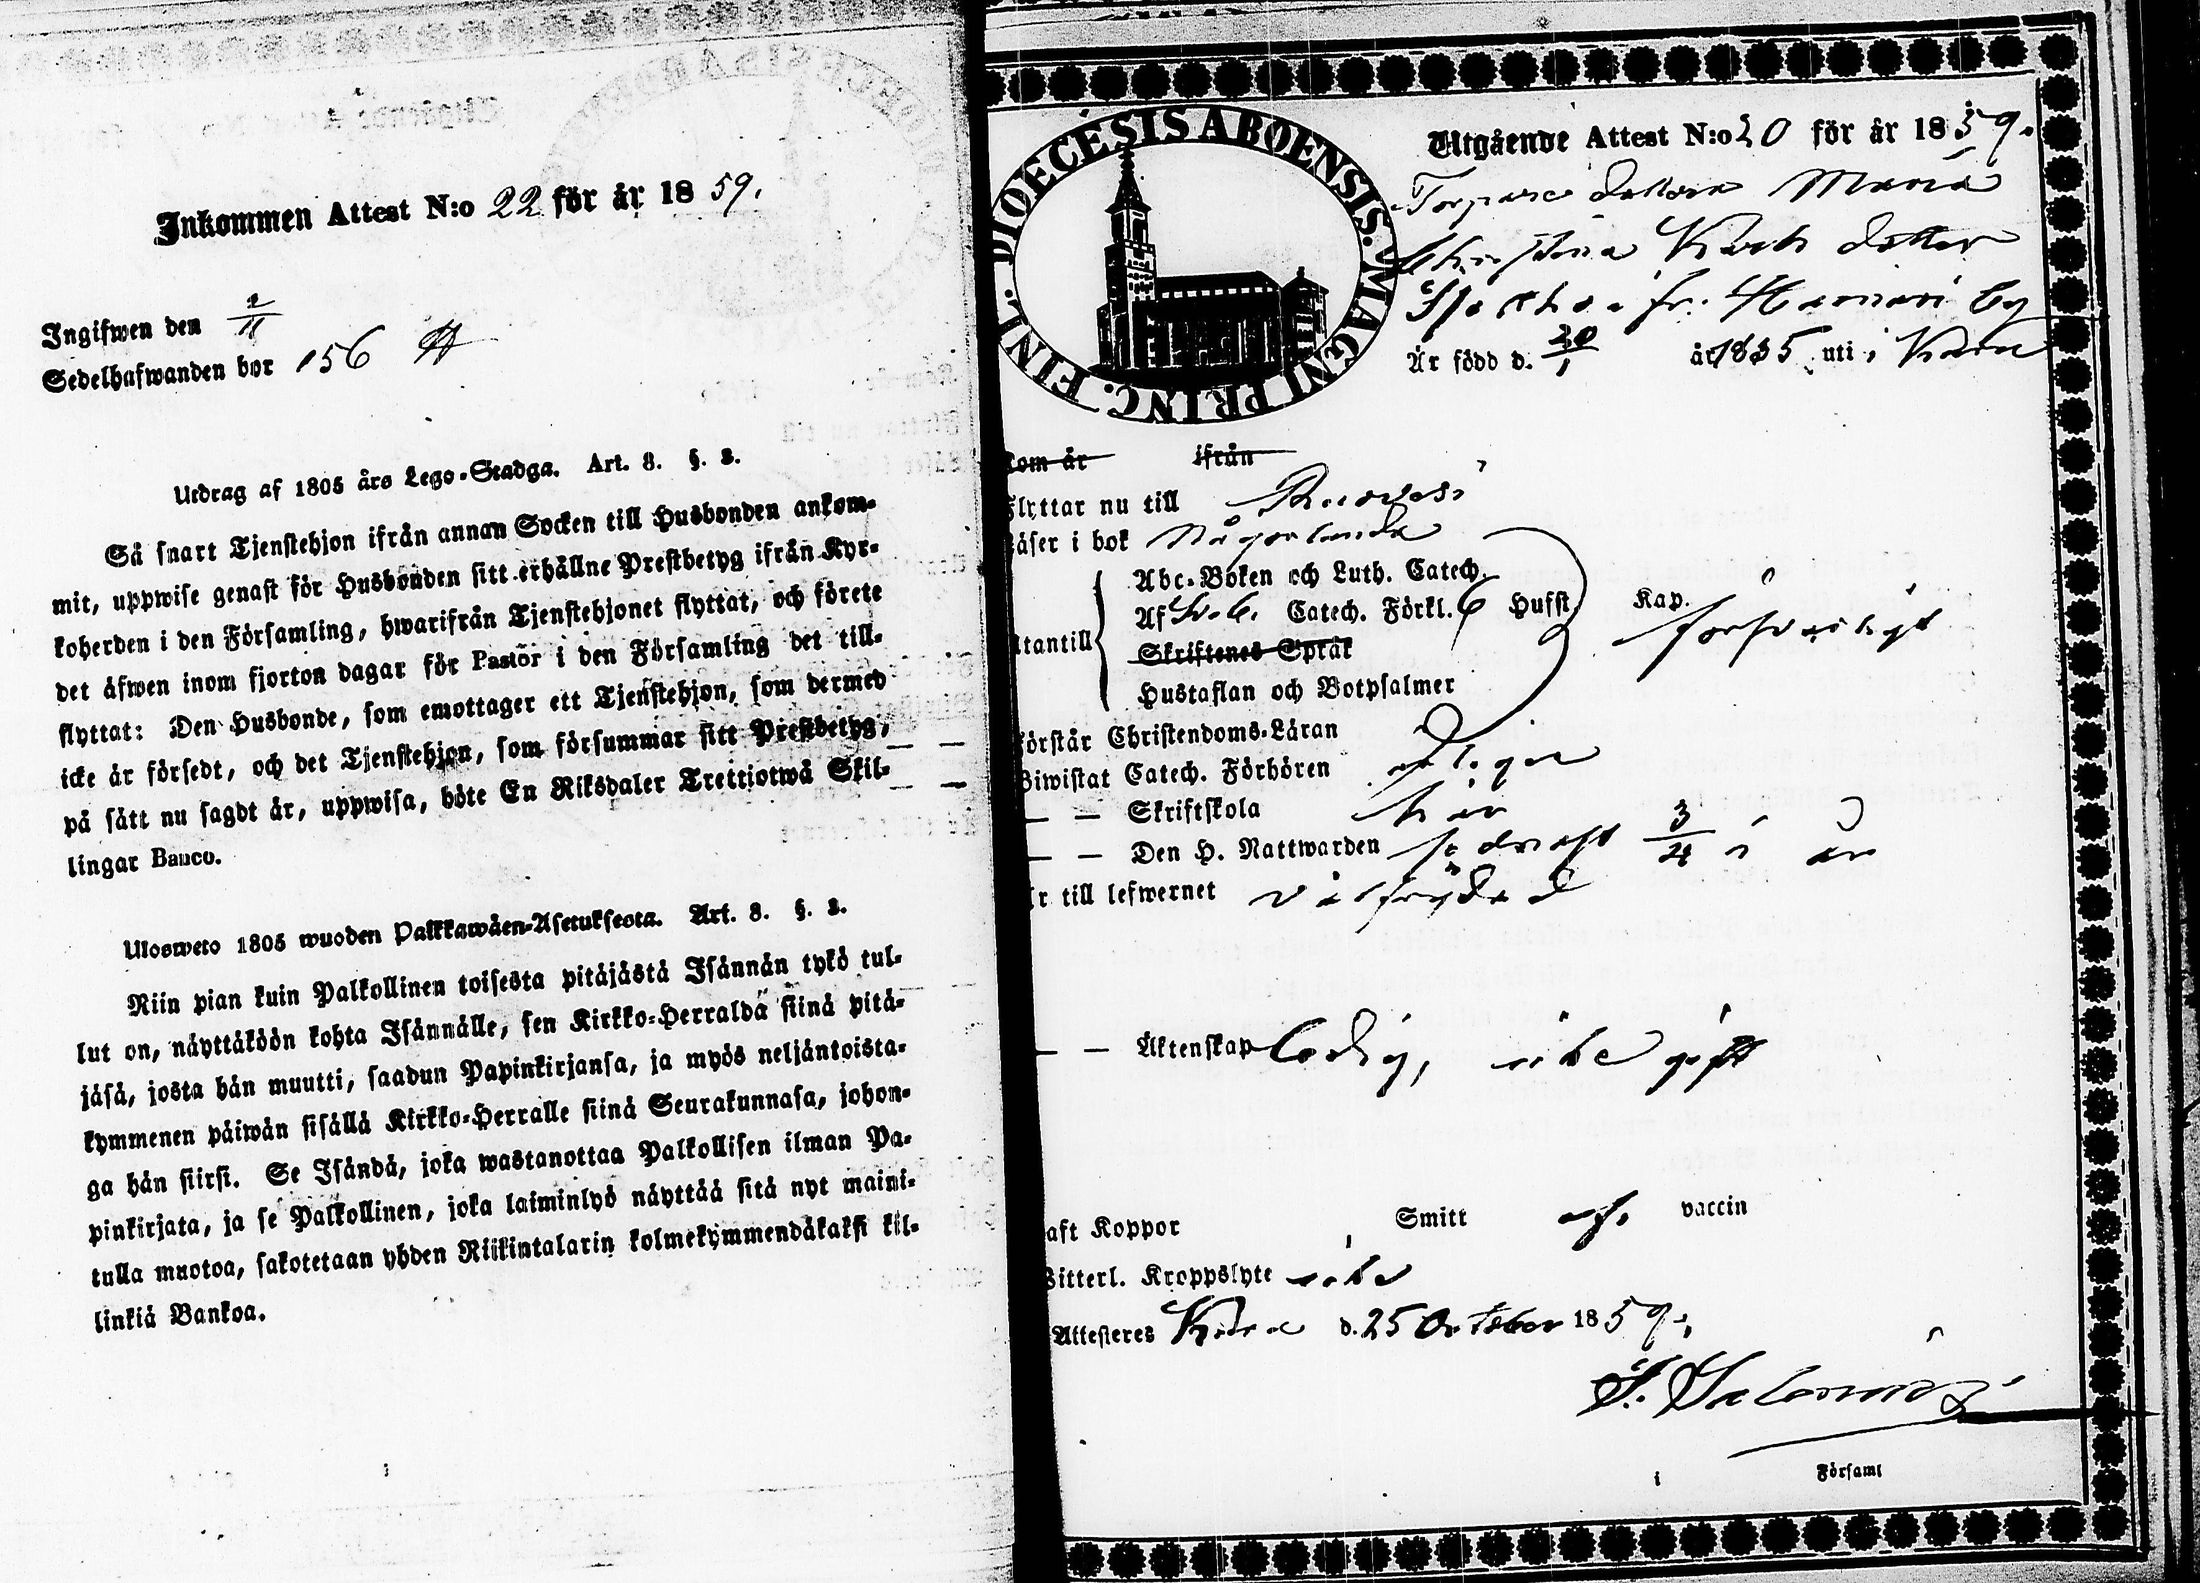 Inkommen Attest N:o 22 för år 1859.
Ingifwen den 2/11
Sedelhafwanden bor 156
Utdrag af 1805 års Lego-Stadga. Art. 8. §. 2.
Så snart Tjenstehjon ifrån annan Socken till Husbonden ankom-
mit, uppwise genast för Husbonden sitt erhållne Prestbetyg ifrån Kyr-
koherden i den Församling, hwarifrån Tjenstehjonet flyttat, och förete
det äfwen inom fjorton dagar för Pastor i den Församling det till-
flyttat: Den Husbonde, som emottager ett Tjenstehjon, som dermed
icke är försedt, och det Tjenstehjon, som försummar sitt Prestbetyg,
på sätt nu sagdt är, uppwisa, böte En Riksdaler Trettiotwå Skil-
lingar Banco.
Ulosweto 1805 wuoden Palkkawäen-Asetuksesta. Art. 8. §. 2.
Niin pian kuin Palkollinen toisesta pitäjästä Isännän tykö tul-
lut on, näyttäköön kohta Isännälle, sen Kirkko-Herralda siinä pitä-
jäsä, josta hän muutti, saadun Papinkirjansa, ja myös neljäntoista-
kymmenen päiwän sisällä Kirkko-Herralle siinä Seurakunnasa, johon-
ga hän siirsi. Se Isändä, joka wastanottaa Palkollisen ilman Pa-
pinkirjata, ja se Palkollinen, joka laiminlyö näyttää sitä nyt maini-
tulla muotoa, sakotetaan yhden Riikintalarin kolmekymmendäkaksi kil-
linkiä Bankoa.
DIOECESIS ABOENSIS. MAGNI PRINC. FINL.
Utgående Attest N:o 20 för år 1859.
Torpare dottern Maria
Christina Karls dotter
fr. by
Är född d. 20/1 år 1835 uti Karu
Kom år ifrån
Flyttar nu till Ruovesi
Läser i bok någorlunda
Abc-Boken och Luth. Catech.
Af Sv.b. Catech. Förkl. 6 Hufst. Kap.
Utantill försvarligt
Skriftenes Språk
Hustaflan och Botpsalmer
Förstår Christendoms-Läran
Biwistat Catech. Förhören årligen
— — Skriftskola här
— — Den H. Nattwarden sednast 3/4 i år
Är till lefwernet välfrejdad
— — Äktenskap ledig, icke gift
Haft Koppor , Smitt af vaccin
Witterl. Kroppslyte icke
Attesteres Karu d. 25 October 1859.
i Församl